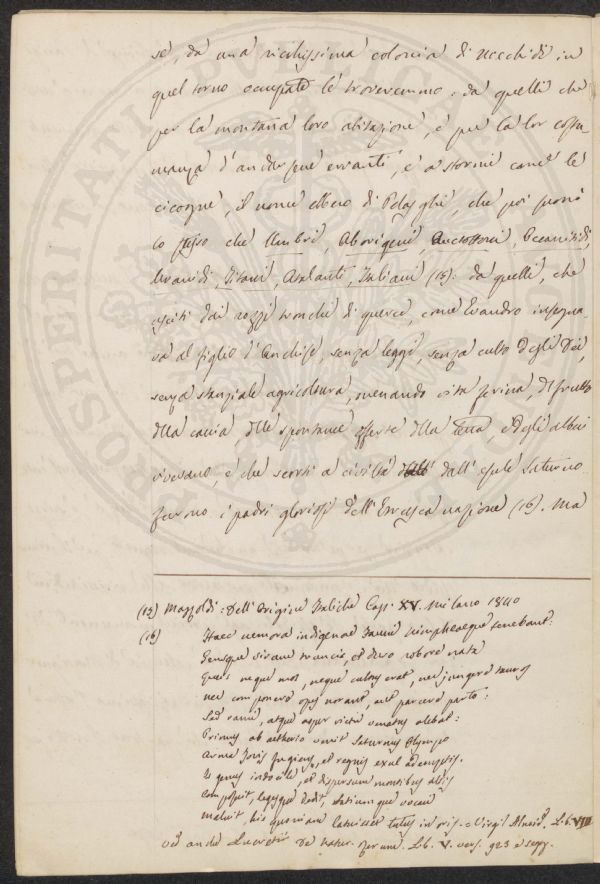 se, da una ricchissima colonia di uccelli di in
quel torno occupate le troveremmo. da quelli che
per la montana loro abitazione, e per la lor costu-
manza d'andar sene erranti, e a stormi come le
cicogne, il nome ebbero di Pelasghi, che poi suonò
lo stesso che Umbri, Aborigeni, Auctottoni, Oceanitidi,
Uranidi, Titani, Atalanti, Italiani (15): da quelli, che
usciti dai rozzi tronchi di querce, come Evandro insegna-
va al figlio d'Anchise, senza leggi, senza culto degli Dei,
senza stanziale agricoltura, menando vita ferina, di frutto
della caccia delle spontanee offerte della terra, e degli alberi
vivevano, e che scorti a civiltà dall'esule Saturno
furono i padri gloriosi dell'Etrusca nazione (16). Ma
(15) Mazzoldi: Dell'Origini Italiche Cap. XV. Milano 1840
(16) Haec nemora indigenae Fauni Nimphaeque tenebant:
Gensque virum truncis, et duro robore nata
Queis neque mos, neque cultus erat, nec jungere tauros
nec componere opes norant, aut parcere parto:
Sed rami, atque asper victu venatus alebat:
Primus ab aetherio venit Saturnus Olympo
Arma Jovis fugiens, et regnis exul ademptis.
Is genus indocile, et dispersum montibus altis
Composuit, legesque dedit, Latiumque vocari
maluit, his quoniam latuisset tutus in oris. Virgil Aneid. Lib. VIII
vedi anche Lucretii De natur. rerum. Lib. V. vers. 923 e segg.